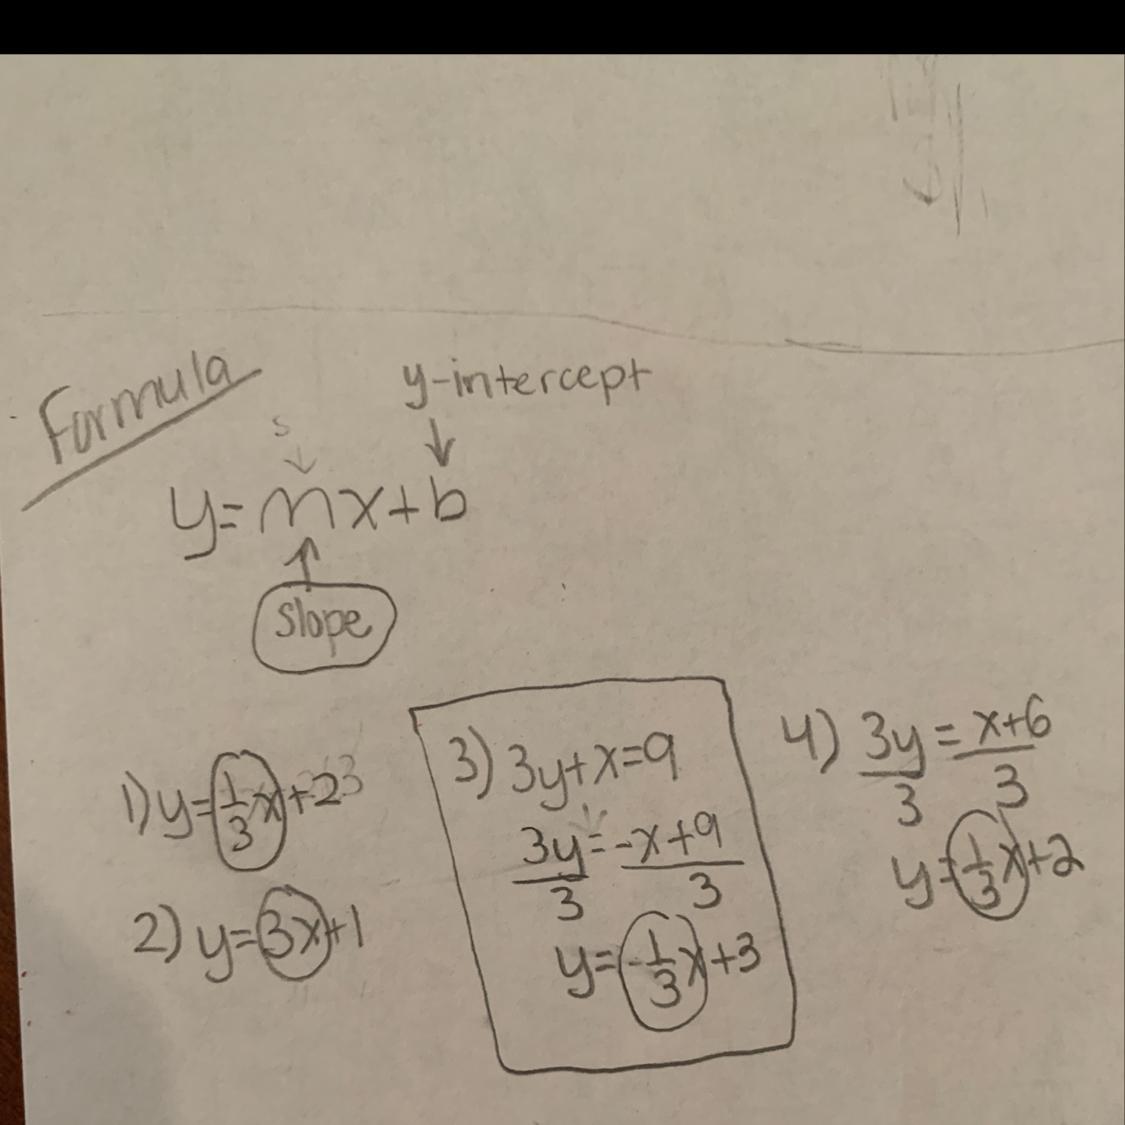 Formula
y-intercept
s
y=mx+b
slope
1) y=1/3x+23
2) y=3x+1
3) 3y+x=9
3y/3=-x+9/3
y=-1/3x+3
4) 3y/3=x+6/3
y=1/3x+2